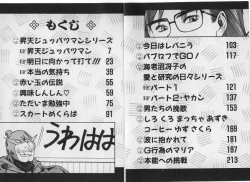 もくじ
昇天ジュッパツマンシリーズ
①昇天ジュッパツマン 7
②明日に向かって打て!!! 23
③本当の気持ち 39
④赤い玉の伝説 55
⑤興味しんしん♡ 59
⑥ただいま勉強中 75
⑦スカートめくらば 91
うわはは
⑧今日はしバこう 103
⑨パブロフでGO! 117
⑩海老沼冴子の
愛と研究の日々シリーズ
パート1 121
パート2・ヤカン 137
⑪男たちの挽歌 153
⑫しろくろまっちゃあずき
コーヒーゆずさくら 169
⑬波に抱かれて 181
⑭G行為のマリア 197
⑮本能への挑戦 213